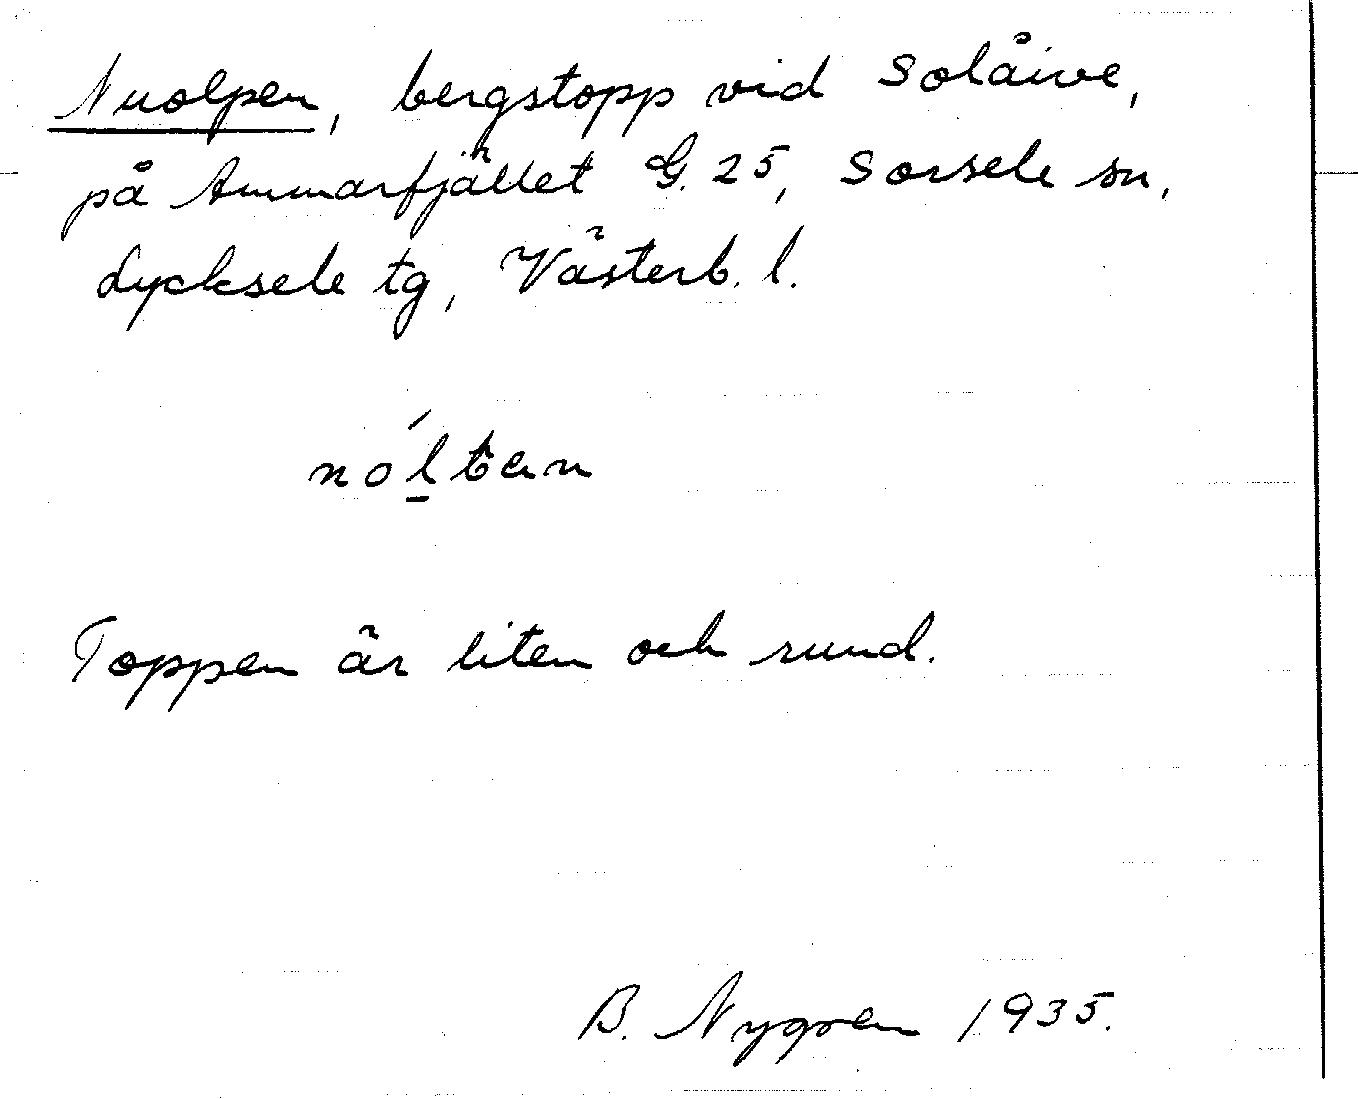 Nuolpen, bergstopp vid Solåive,
på Ammarfjället G. 25, Sorsele sn,
Lycksele tg, Västerb. l.
nól̲ten
Toppen är liten och rund.
B. Nygren 1935.